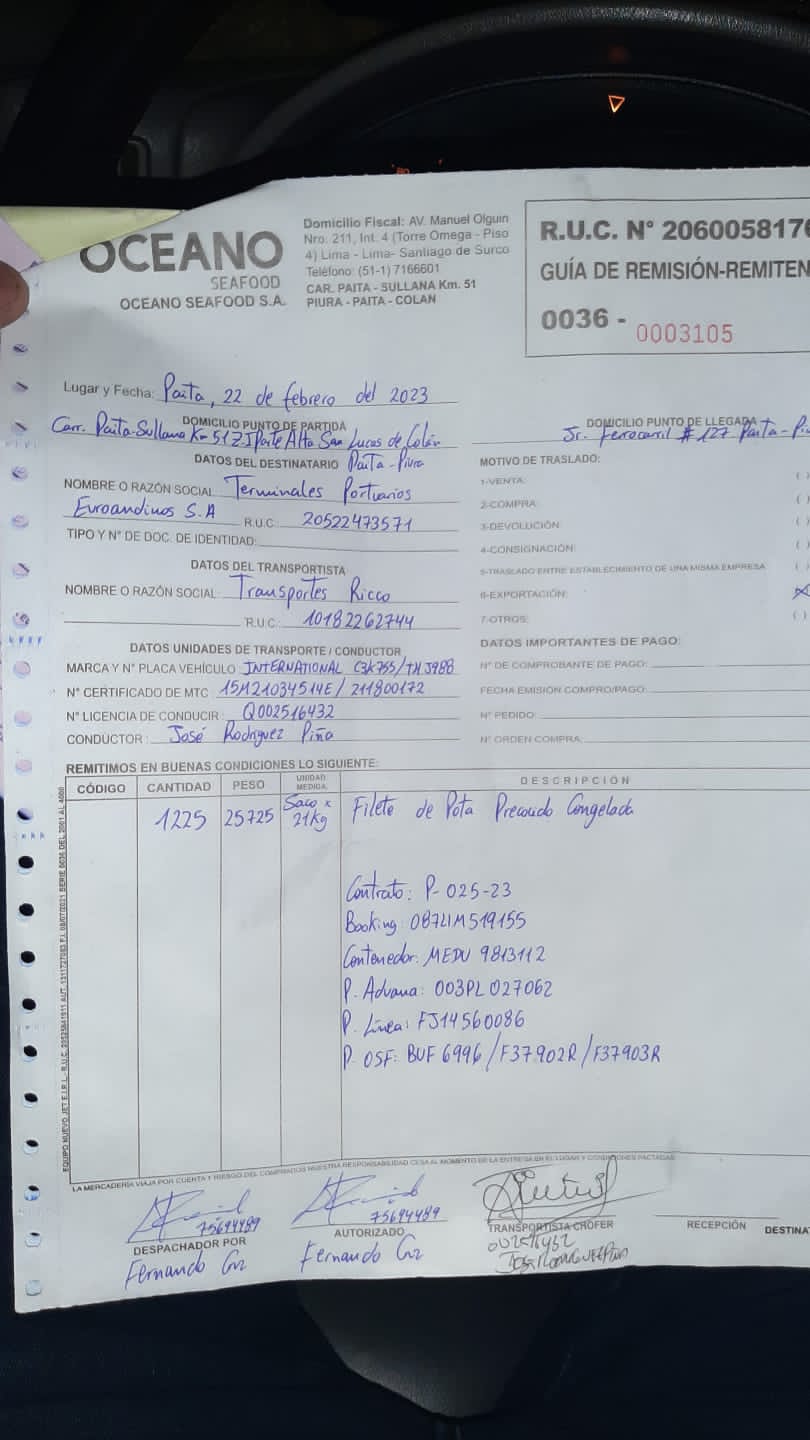 OCEANO
SEAFOOD
OCEANO SEAFOOD S.A.
Domicilio Fiscal: AV. Manuel Olguin
Nro. 211, Int. 4 (Torre Omega - Piso
4) Lima - Lima- Santiago de Surco
Teléfono: (51-1) 7166601
CAR. PAITA - SULLANA Km. 51
PIURA - PAITA - COLAN
R.U.C. N° 2060058176
GUÍA DE REMISIÓN-REMITEN
0036 - 0003105
Lugar y Fecha: Paita, 22 de febrero del 2023
DOMICILIO PUNTO DE PARTIDA
Carr. Paita-Sullana Km 51 Z.I Parte Alta San Lucas de Colán
Paita-Piura
DOMICILIO PUNTO DE LLEGADA
Jr. Ferrocarril # 127 Paita-Piu
DATOS DEL DESTINATARIO
NOMBRE O RAZÓN SOCIAL Terminales Portuarios
Euroandinos S.A R.U.C. 20522473571
TIPO Y N° DE DOC. DE IDENTIDAD:
DATOS DEL TRANSPORTISTA
NOMBRE O RAZÓN SOCIAL: Transportes Ricco
R.U.C. 10182262744
DATOS UNIDADES DE TRANSPORTE / CONDUCTOR
MARCA Y N° PLACA VEHÍCULO: INTERNATIONAL
N° CERTIFICADO DE MTC: 15M21034514E / 211800172
N° LICENCIA DE CONDUCIR: Q002516432
CONDUCTOR: José Rodriguez Piña
MOTIVO DE TRASLADO:
1-VENTA: ( )
2-COMPRA: ( )
3-DEVOLUCIÓN: ( )
4-CONSIGNACIÓN: ( )
5-TRASLADO ENTRE ESTABLECIMIENTO DE UNA MISMA EMPRESA ( )
6-EXPORTACIÓN: X
7-OTROS: ( )
DATOS IMPORTANTES DE PAGO:
N° DE COMPROBANTE DE PAGO:
FECHA EMISIÓN COMPRO/PAGO:
N° PEDIDO:
N° ORDEN COMPRA:
REMITIMOS EN BUENAS CONDICIONES LO SIGUIENTE:
CÓDIGO CANTIDAD PESO UNIDAD MEDIDA DESCRIPCIÓN
1225 25725 Saco x 21Kg Filete de Pota Precocido Congelada
Contrato: P-025-23
Booking: 087LIM519155
Contenedor: MEDU 9813112
P. Aduana: 003PL027062
P. Línea: FJ14560086
P. OSF: BUF 6996 / F37902R / F37903R
LA MERCADERÍA VIAJA POR CUENTA Y RIESGO DEL COMPRADOR NUESTRA RESPONSABILIDAD CESA AL MOMENTO DE LA ENTREGA EN EL LUGAR Y CONDICIONES PACTADAS
75694489
DESPACHADOR POR
Fernando
75694489
AUTORIZADO
Fernando
TRANSPORTISTA CHOFER
RECEPCIÓN
DESTINA